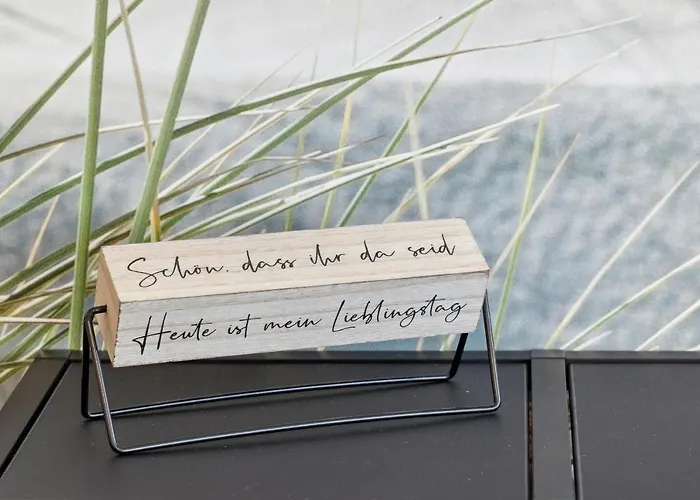 Schön, dass ihr da seid
Heute ist mein Lieblingstag